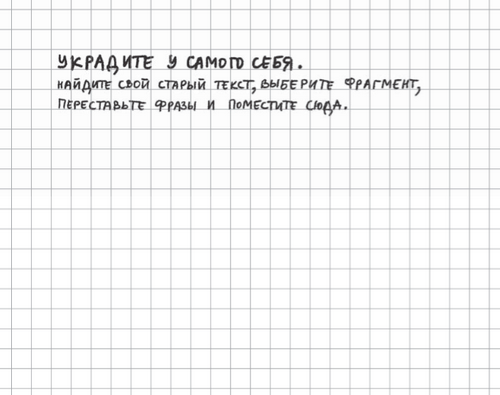 УКРАДИТЕ У САМОГО СЕБЯ.
НАЙДИТЕ СВОЙ СТАРЫЙ ТЕКСТ, ВЫБЕРИТЕ ФРАГМЕНТ,
ПЕРЕСТАВЬТЕ ФРАЗЫ И ПОМЕСТИТЕ СЮДА.